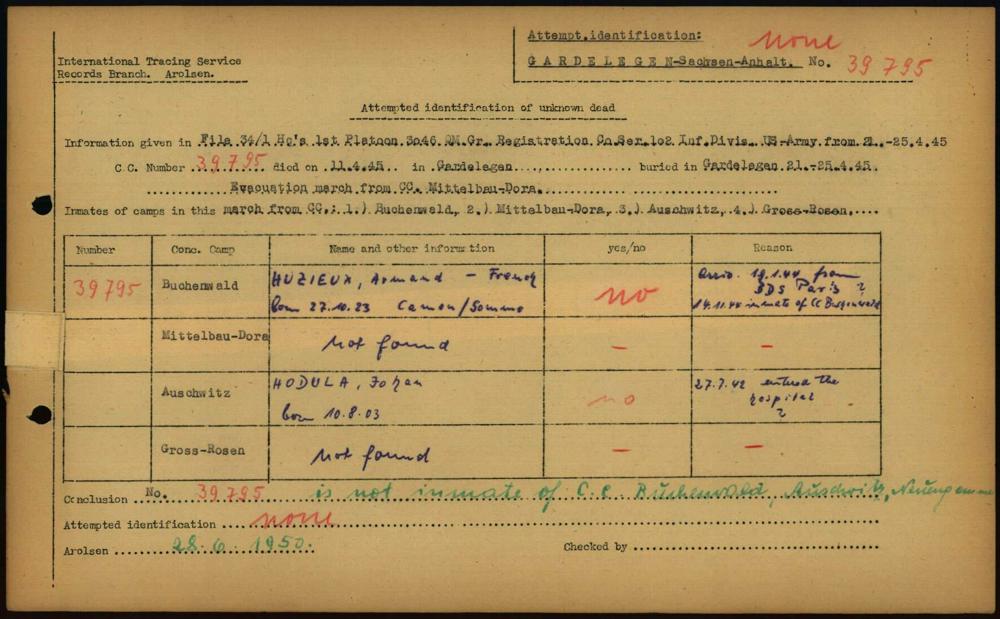 Attempt.identification: none
GARDELEGEN-Sachsen-Anhalt. No. 39795
International Tracing Service
Records Branch. Arolsen.
Attempted identification of unknown dead
Information given in File 34/1 Hq's 1st Platoon 3046 QM.Gr. Registration Co.Ser.102 Inf.Divis. US-Army.from.21.-25.4.45
C.C. Number 39795 died on 11.4.45 in Gardelegen buried in Gardelegen 21.-25.4.45.
Evacuation march from CC. Mittelbau-Dora.
Inmates of camps in this march from CC.: 1.) Buchenwald, 2.) Mittelbau-Dora, 3.) Auschwitz, 4.) Gross-Rosen.
Number Conc. Camp Name and other information yes/no Reason
39795 Buchenwald HUZIEUX, Armand - French no 19.1.44 from
BDS Paris ?
born 27.10.23 Camon/Somme 14.11.44 inmate of CC
Mittelbau-Dora not found - -
Auschwitz HODULA, Johan no 27.7.42 entered the
born 10.8.03 hospital
?
Gross-Rosen not found - -
Conclusion No. 39795 is not inmate of C.C. Buchenwald, Auschwitz, Neuengamme
Attempted identification none
Arolsen 28.6.1950. Checked by